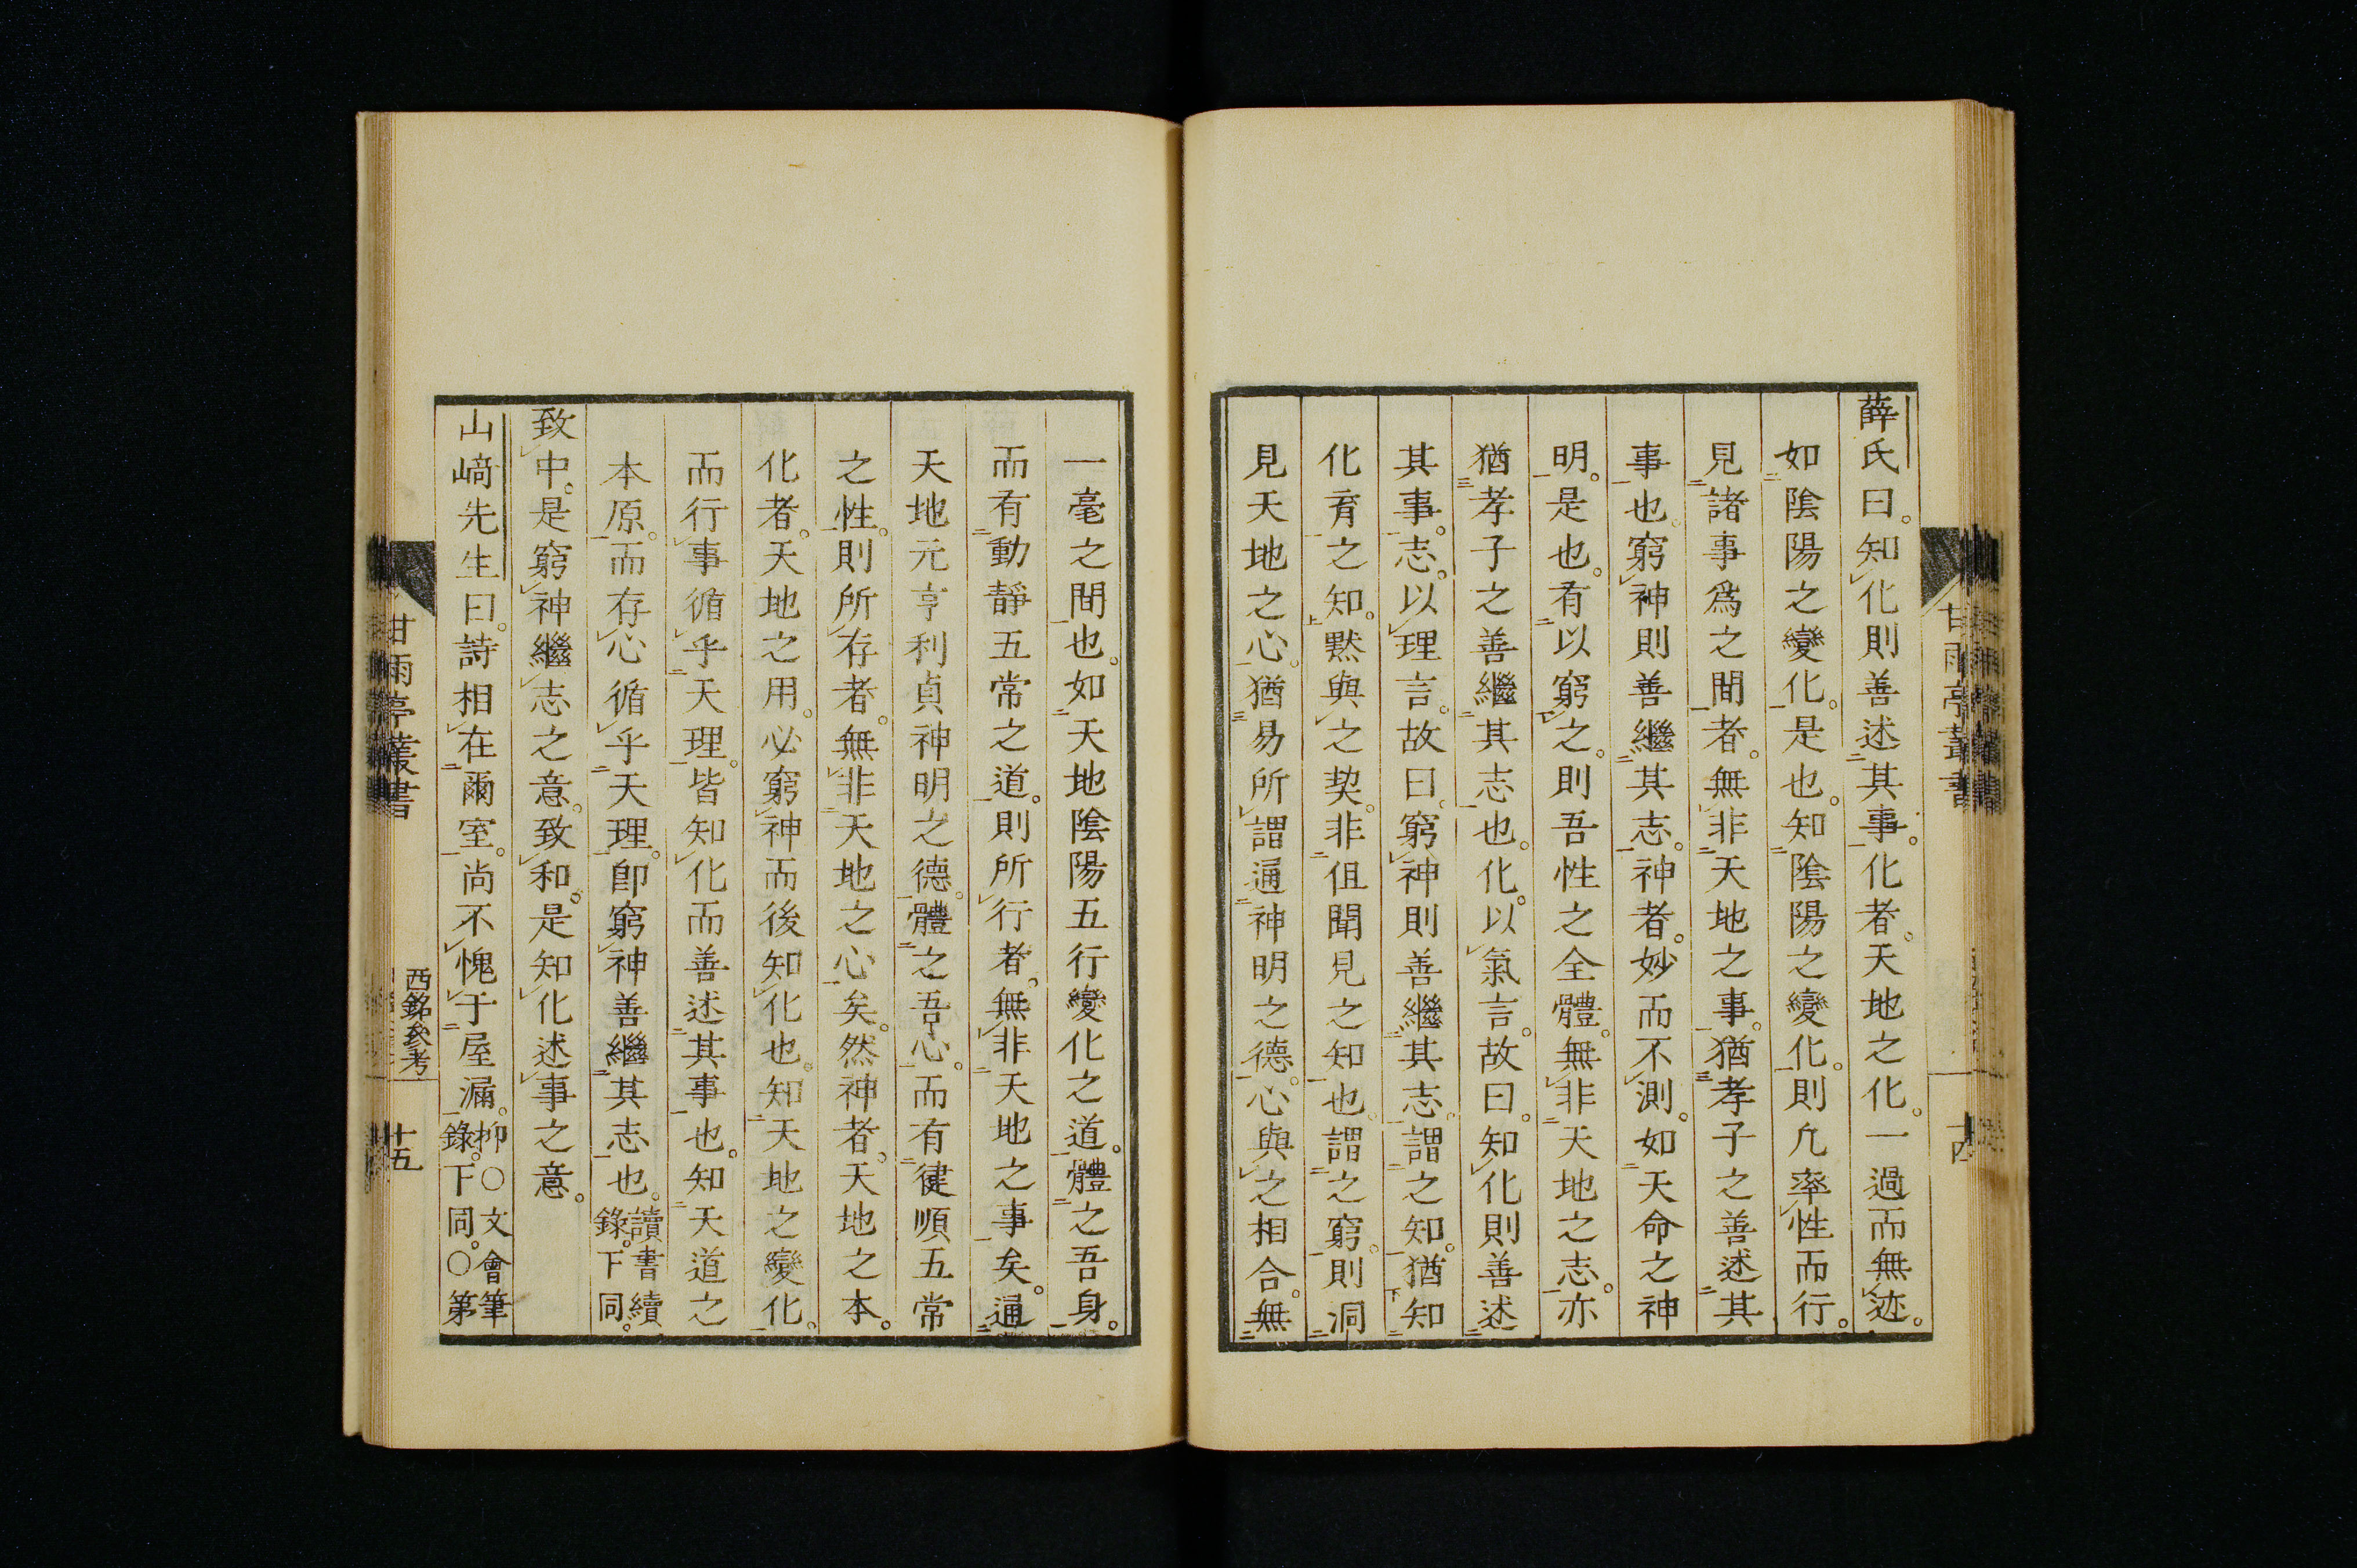 薛氏曰。知化則善述其事。化者。天地之化。一過而無迹。
如陰陽之變化。是也。知陰陽之變化。則凢率性而行。
見諸事爲之間者。無非天地之事。猶孝子之善述其
事也。窮神則善繼其志。神者。妙而不測。如天命之神
明。是也。有以窮之。則吾性之全體。無非天地之志。亦
猶孝子之善繼其志也。化。以氣言。故曰。知化則善述
其事。志。以理言。故曰。窮神則善繼其志。謂之知。猶知
化育之知。黙與之契。非但聞見之知也。謂之窮。則洞
見天地之心。猶易所謂通神明之德。心與之相合。無
一毫之間也。如天地陰陽五行變化之道。體之吾身。
而有動靜五常之道。則所行者。無非天地之事矣。通
天地元亨利貞神明之德。體之吾心。而有健順五常
之性。則所存者。無非天地之心矣。然神者。天地之本。
化者。天地之用。必窮神而後知化也。知天地之變化。
而行事循乎天理。皆知化而善述其事也。知天道之
本原。而存心循乎天理。卽窮神善繼其志也。讀書續
錄。下同。
致中。是窮神繼志之意。致和。是知化述事之意。
山﨑先生曰。詩相在爾室。尚不愧于屋漏。抑○文會筆
錄。下同。○第
甘雨亭叢書
西銘參考
十五
甘雨亭叢書